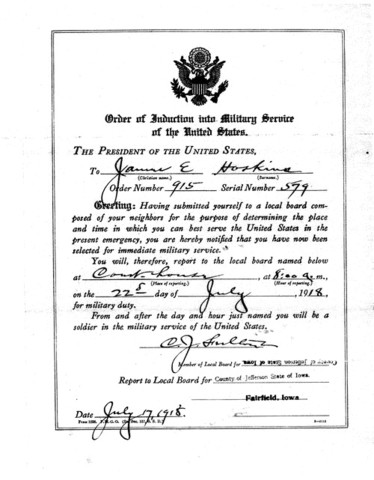 Order of Induction into Military Service
of the United States.
THE PRESIDENT OF THE UNITED STATES,
To James E Hoskins
(Christian name.) (Surname.)
Order Number 915 Serial Number 599
Greeting: Having submitted yourself to a local board com-
posed of your neighbors for the purpose of determining the place
and time in which you can best serve the United States in the
present emergency, you are hereby notified that you have now been
selected for immediate military service.
You will, therefore, report to the local board named below
at Court house, at 8:00 a m.,
(Place of reporting.) (Hour of reporting.)
on the 22 day of July, 1918,
for military duty.
From and after the day and hour just named you will be a
soldier in the military service of the United States.
C. J.
Member of Local Board for County of Jefferson State of Iowa
Report to Local Board for County of Jefferson State of Iowa.
Fairfield, Iowa
Date July 17, 1918.
Form 1028, P. M. G. O.